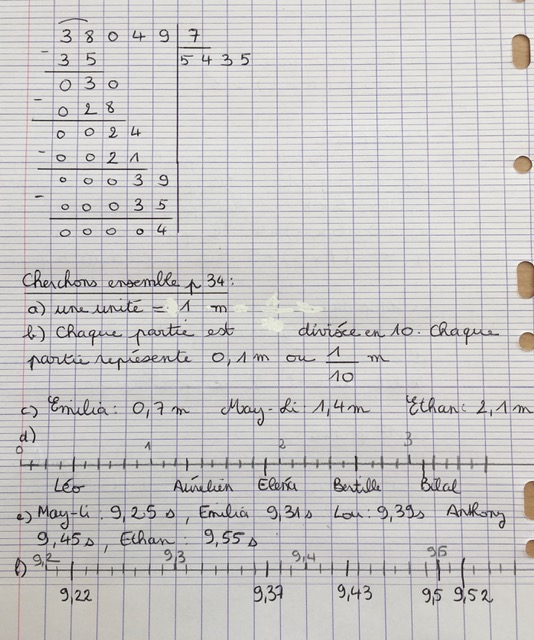 38049 | 7
- 35 | 5435
030
- 028
0024
- 0021
00039
- 00035
00004
Cherchons ensemble p 34:
a) une unité = 1 m
b) Chaque partie est divisée en 10. Chaque
partie représente 0,1 m ou 1/10 m
c) Emilia: 0,7 m May-Li: 1,4 m Ethan: 2,1 m
d)
0 1 2 3
Léo Aurélien Bertille Bilal
e) May-Li: 9,25 s, Emilia 9,31 s Lou: 9,39 s Anthony
9,45 s, Ethan: 9,55 s
f) 9,2 9,3 9,4 9,5
9,22 9,37 9,43 9,5 9,52